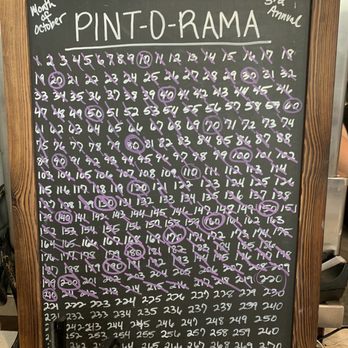 Month of October
PINT-O-RAMA
3rd Annual
1 2 3 4 5 6 7 8 9 10 11 12 13 14 15 16 17 18
19 20 21 22 23 24 25 26 27 28 29 30 31 32
33 34 35 36 37 38 39 40 41 42 43 44 45 46
47 48 49 50 51 52 53 54 55 56 57 58 59 60
61 62 63 64 65 66 67 68 69 70 71 72 73 74
75 76 77 78 79 80 81 82 83 84 85 86 87 88
89 90 91 92 93 94 95 96 97 98 99 100 101 102
103 104 105 106 107 108 109 110 111 112 113 114
115 116 117 118 119 120 121 122 123 124 125 126
127 128 129 130 131 132 133 134 135 136 137 138
139 140 141 142 143 144 145 146 147 148 149 150 151
152 153 154 155 156 157 158 159 160 161 162 163
164 165 166 167 168 169 170 171 172 173 174 175
176 177 178 179 180 181 182 183 184 185 186
187 188 189 190 191 192 193 194 195 196 197 198
199 200 201 202 203 204 205 206 207 208 209
210 211 212 213 214 215 216 217 218 219 220
221 222 223 224 225 226 227 228 229 230
231 232 233 234 235 236 237 238 239 240
242 243 244 245 246 247 248 249 250
252 253 254 255 256 257 258 259 260
262 264 265 266 267 268 269 270